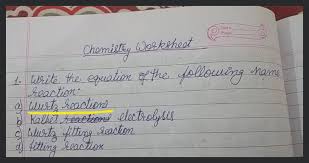 Chemistry Worksheet
1. Write the equation of the following name
reaction.
a) Wurtz reaction
b) Kolbe's reactions electrolysis
c) Wurtz fitting reaction
d) fitting reaction